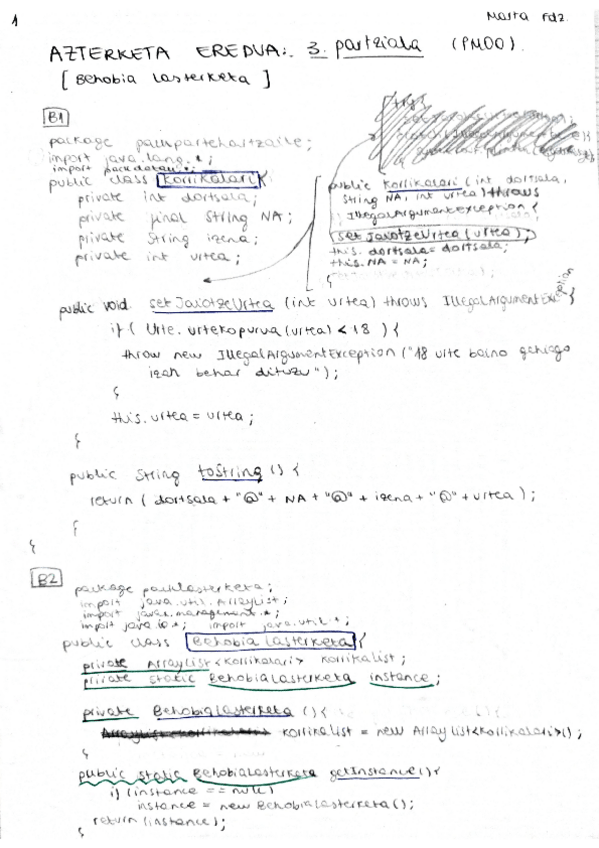 1
Marta Fdz.
AZTERKETA EREDUA: 3. partziala (PMOO).
[ Behobia Lasterketa ]
B1
package packpartehartzaile;
import java.lang.*;
import packdatau.*;
public class Korrikalari {
private int dortsala;
private final String NA;
private String izena;
private int urtea;
public Korrikalari (int dortsala,
String NA, int urtea) throws
IllegalArgumentException {
setJaiotzeUrtea (urtea);
this.dortsala = dortsala;
this.NA = NA;
}
public void setJaiotzeUrtea (int urtea) throws IllegalArgumentException {
if ( Urte. urtekopurua (urtea) < 18 ) {
throw new IllegalArgumentException ("18 urte baino gehiago
izan behar dituzu");
}
this.urtea = urtea;
}
public String toString () {
return ( dortsala + "@" + NA + "@" + izena + "@" + urtea );
}
}
B2
package packlasterketa;
import java.util.ArrayList;
import javax.management.*;
import java.io.*; import java.util.*;
public class BehobiaLasterketa {
private ArrayList<Korrikalari> korrikalist;
private static BehobiaLasterketa instance;
private BehobiaLasterketa () {
korrikalist = new ArrayList<Korrikalari>();
}
public static BehobiaLasterketa getInstance() {
if (instance == null)
instance = new BehobiaLasterketa();
return (instance);
}